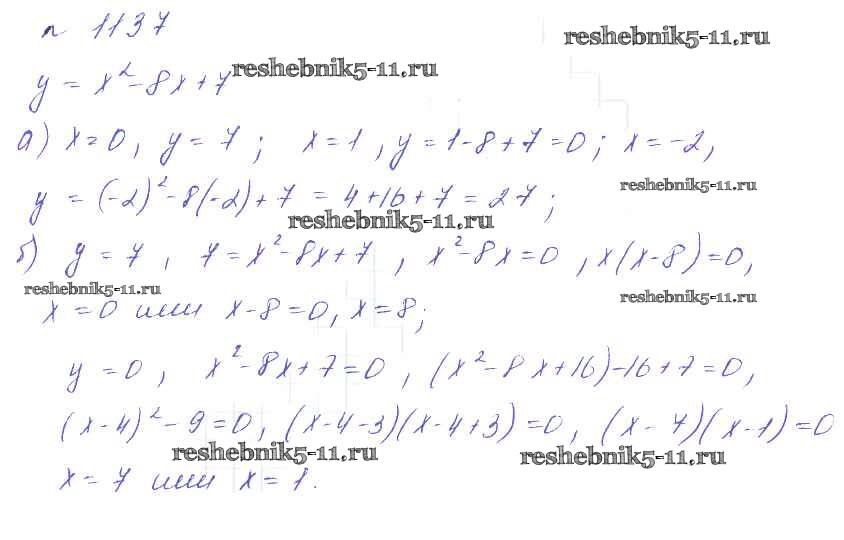 n 1137
reshebnik5-11.ru
y = x² - 8x + 7 reshebnik5-11.ru
а) x = 0, y = 7; x = 1, y = 1 - 8 + 7 = 0; x = -2,
reshebnik5-11.ru
y = (-2)² - 8(-2) + 7 = 4 + 16 + 7 = 27;
reshebnik5-11.ru
б) y = 7, 7 = x² - 8x + 7, x² - 8x = 0, x(x - 8) = 0,
reshebnik5-11.ru
reshebnik5-11.ru
x = 0 или x - 8 = 0, x = 8;
y = 0, x² - 8x + 7 = 0, (x² - 8x + 16) - 16 + 7 = 0,
(x - 4)² - 9 = 0, (x - 4 - 3)(x - 4 + 3) = 0, (x - 7)(x - 1) = 0
reshebnik5-11.ru
reshebnik5-11.ru
x = 7 или x = 1.